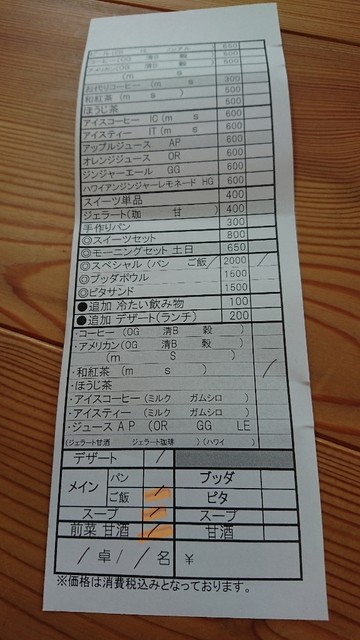 ビール(DB ノンアル 650
コーヒー(OG 清B 穀 500
アメリカン(OG 清B 穀 500
(m s
お代りコーヒー (m s 300
和紅茶 (m s ) 500
ほうじ茶 500
アイスコーヒー IC (m s 600
アイスティー IT (m s 600
アップルジュース AP 600
オレンジジュース OR 600
ジンジャーエール GG 600
ハワイアンジンジャーレモネード HG 600
スイーツ単品 400
ジェラート(珈 甘 ) 400
手作りパン 300
◎スイーツセット 800
◎モーニングセット 土日 650
◎スペシャル(パン ご飯/ 2000 /
◎ブッダボウル 1500
◎ピタサンド 1500
●追加 冷たい飲み物 100
●追加 デザート(ランチ) 200
・コーヒー(OG 清B 穀 )
・アメリカン(OG 清B 穀 )
(m S )
・和紅茶 (m s ) /
・ほうじ茶
・アイスコーヒー (ミルク ガムシロ )
・アイスティー (ミルク ガムシロ )
・ジュース A P (OR GG LE
(ジェラート甘酒 ジェラート珈琲 ) (ハワイ )
デザート /
メイン パン ブッダ
ご飯 / ピタ
スープ / スープ
前菜 甘酒 / 甘酒
/ 卓/ / 名 ¥
※価格は消費税込みとなっております。